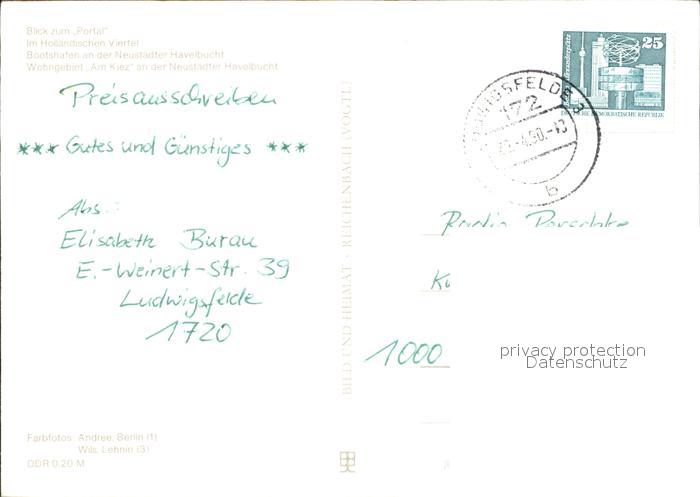 Blick zum „Portal"
Im Holländischen Viertel
Bootshafen an der Neustädter Havelbucht
Wohngebiet „Am Kiez" an der Neustädter Havelbucht
Preisausschreiben
*** Gutes und Günstiges ***
Abs.:
Elisabeth Burau
E.-Weinert-Str. 39
Ludwigsfelde
1720
Farbfotos: Andree, Berlin (1)
Wils, Lehnin (3)
DDR 0,20 M
BILD UND HEIMAT · REICHENBACH (VOGTL)
25
DEUTSCHE DEMOKRATISCHE REPUBLIK
172
b
Radio
1000
privacy protection
Datenschutz